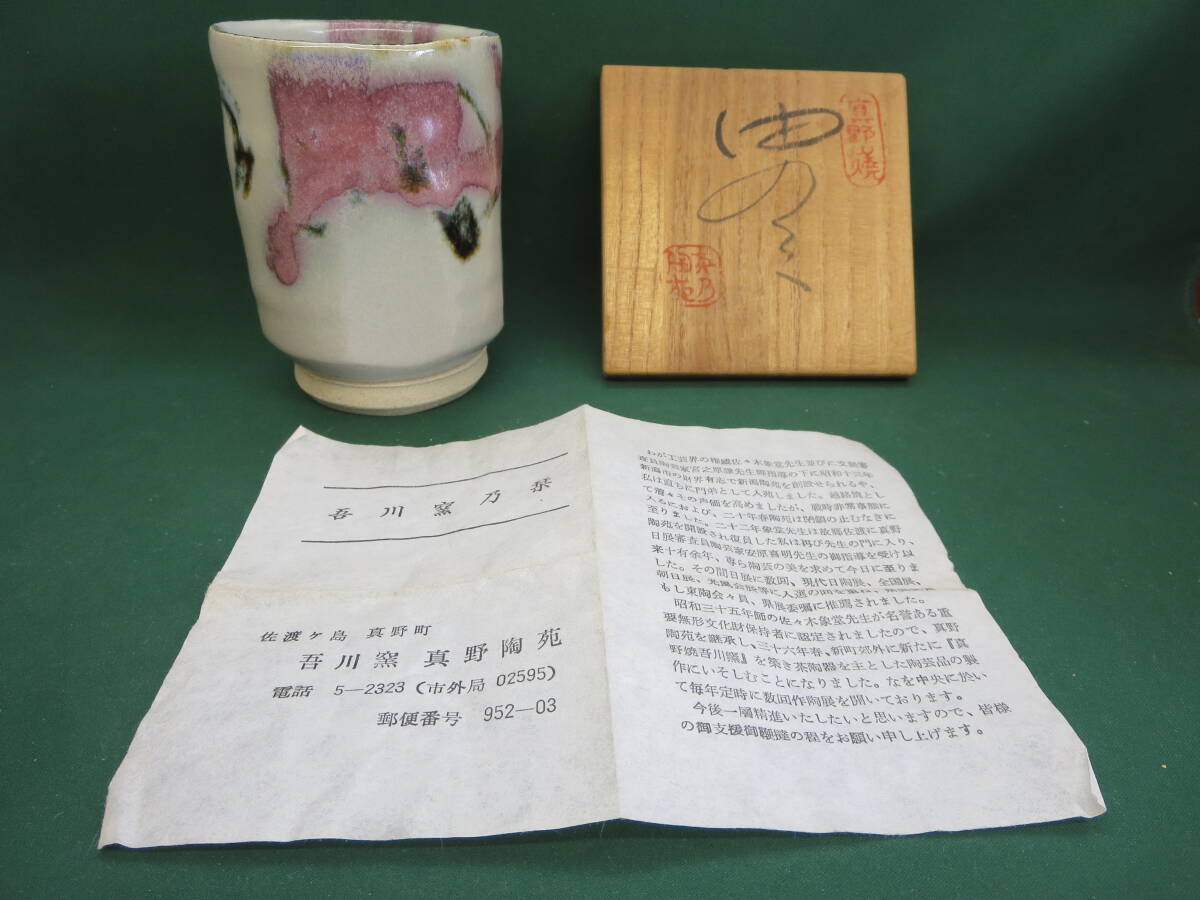 真野焼
由のミ
真乃
陶苑
吾川窯乃栞
佐渡ヶ島 真野町
吾川窯 真野陶苑
電話 5—2323 (市外局 02595)
郵便番号 952—03
わが工芸界の権威佐々木象堂先生並びに文部審
査員陶芸家宮之原謙先生御指導の下に昭和十三年
新潟市の財界有志で新潟陶苑を創設せられるや、
私は直ちに門弟として入苑しました。
て着々その声価を高めましたが、戦時非常事態に
入るにおよび、二十年春陶苑は閉鎖の止むなきに
至りました。二十二年象堂先生は故郷佐渡に真野
陶苑を開設され復員した私は再び先生の門に入り、
日展審査員陶芸家安原喜明先生の御指導を受け以
来十有余年、専ら陶芸の美を求めて今日に至りま
した。その間日展に数回、現代日陶展、全国展、
朝日展、光風会展等に入選の
もし東陶会々員、県展委嘱に推薦されました。
昭和三十五年師の佐々木象堂先生が名誉ある重
要無形文化財保持者に認定されましたので、真野
陶苑を継承し、三十六年春、新町郊外に新たに『真
野焼吾川窯』を築き茶陶器を主とした陶芸品の製
作にいそしむことになりました。なを中央に於い
て毎年定時に数回作陶展を開いております。
今後一層精進いたしたいと思いますので、皆様
の御支援御鞭撻の程をお願い申し上げます。